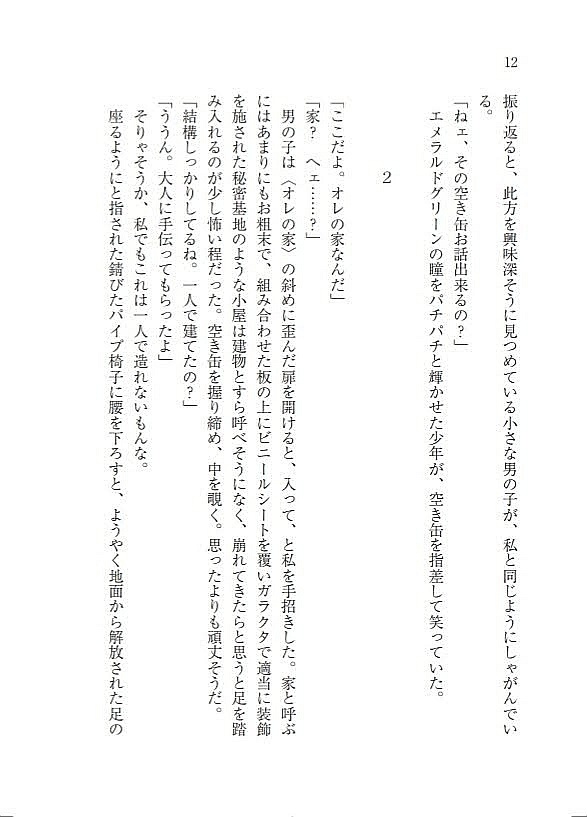 12
振り返ると、此方を興味深そうに見つめている小さな男の子が、私と同じようにしゃがんでい
る。
「ねェ、その空き缶お話出来るの？」
エメラルドグリーンの瞳をパチパチと輝かせた少年が、空き缶を指差して笑っていた。
2
「ここだよ。オレの家なんだ」
「家？　へェ……？」
男の子は〈オレの家〉の斜めに歪んだ扉を開けると、入って、と私を手招きした。家と呼ぶ
にはあまりにもお粗末で、組み合わせた板の上にビニールシートを覆いガラクタで適当に装飾
を施された秘密基地のような小屋は建物とすら呼べそうになく、崩れてきたらと思うと足を踏
み入れるのが少し怖い程だった。空き缶を握り締め、中を覗く。思ったよりも頑丈そうだ。
「結構しっかりしてるね。一人で建てたの？」
「ううん。大人に手伝ってもらったよ」
そりゃそうか、私でもこれは一人で造れないもんな。
座るようにと指された錆びたパイプ椅子に腰を下ろすと、ようやく地面から解放された足の